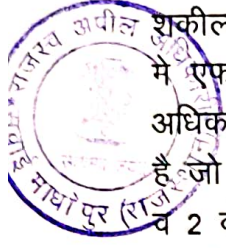 शकील
मे एफ
अधिक
है जो
व 2
राजस्व अपील अधि
माधोपुर (राज